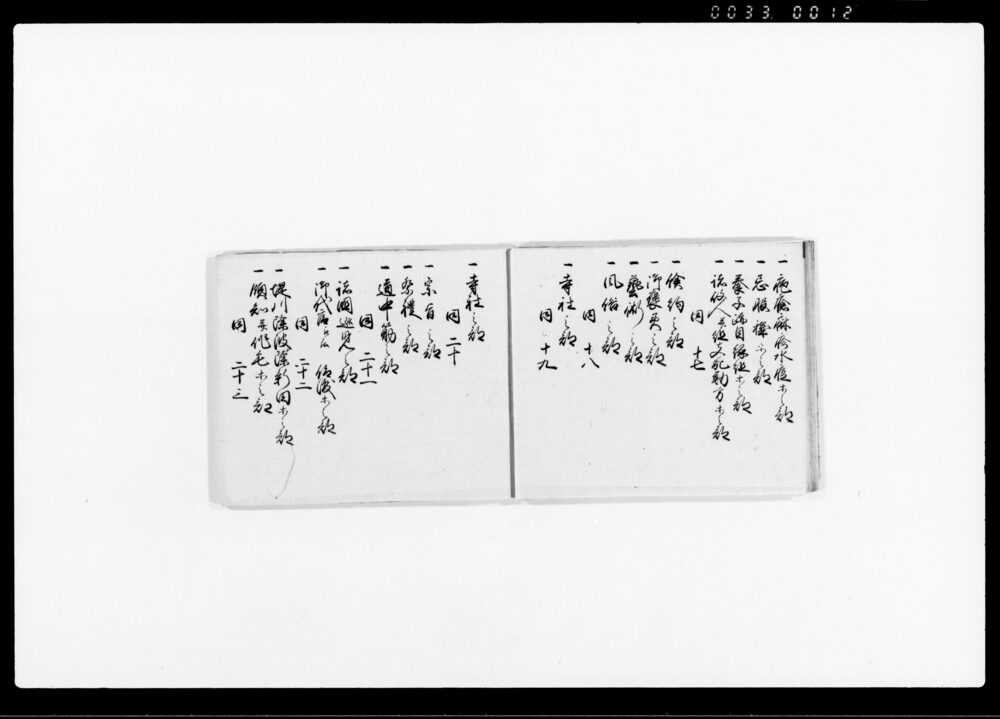 0033 0012
一疱瘡麻疹水痘等之部
一忌服穢等之部
一養子跡目縁組等之部
一諸役人并組支配勤方等之部
同 十七
一倹約之部
一御褒美之部
一藝術之部
同 十八
一風俗之部
一寺社之部
同 十九
一寺社之部
同 二十
一宗旨之部
一祭禮之部
一道中筋之部
同 二十一
一諸國巡見之部
一御代官 等之部
同 二十二
一堤川除浚渫新田等之部
一領知并作毛等之部
同 二十三